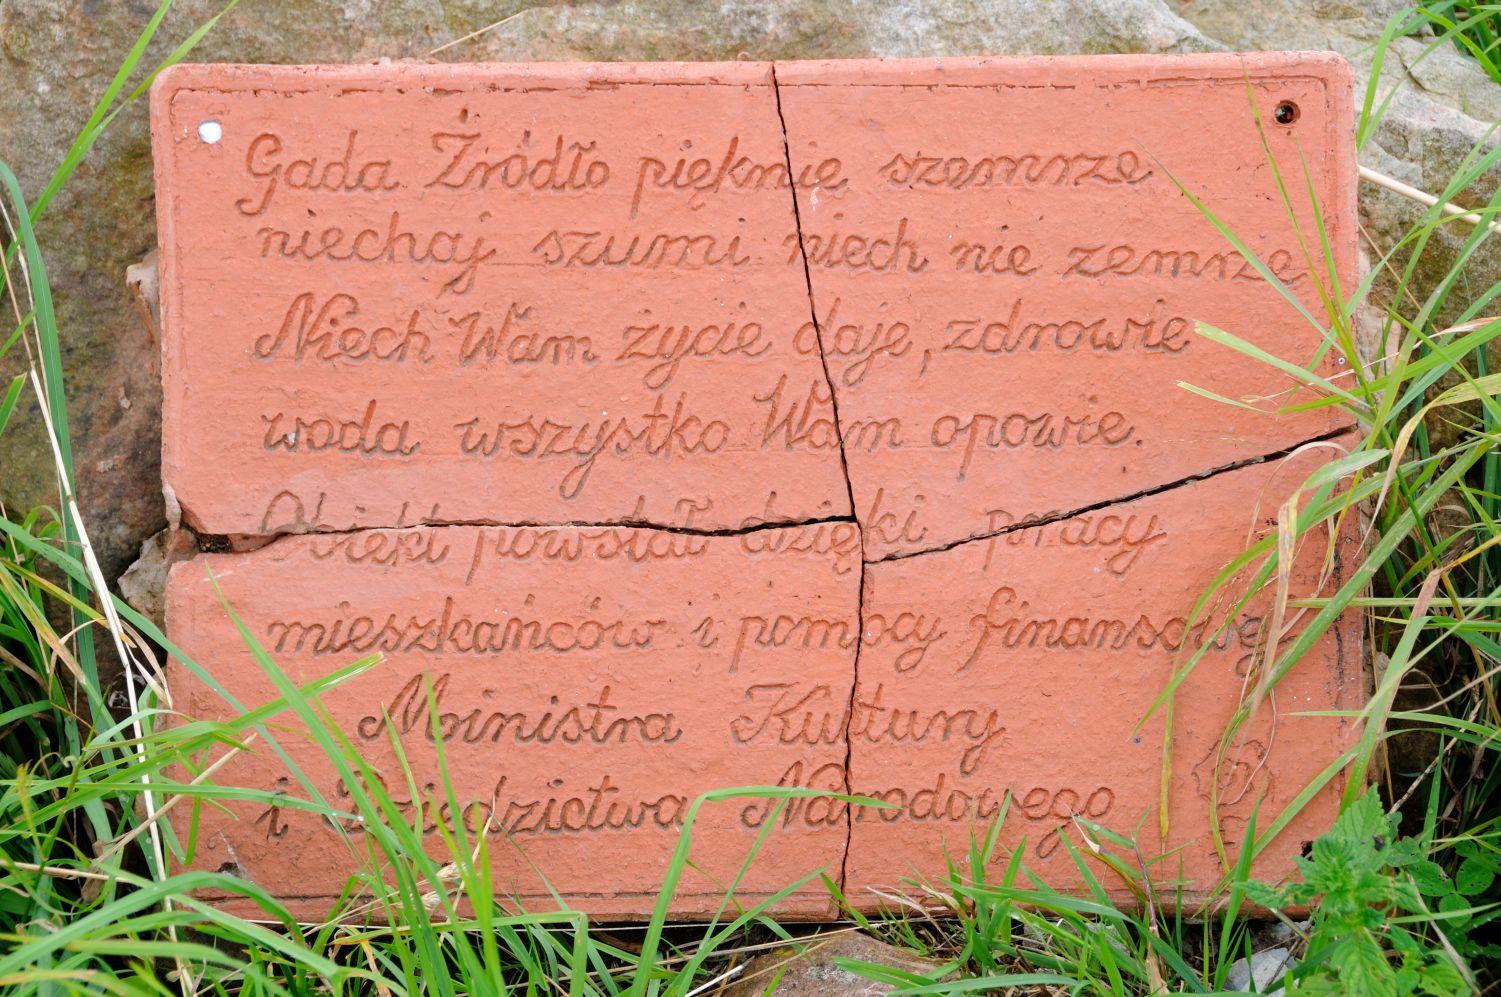 Gada Źródło pięknie szemrze
niechaj szumi niech nie zemrze
Niech Wam życie daje, zdrowie
woda wszystko Wam opowie.
Obiekt powstał dzięki pracy
mieszkańców i pomocy finansowej
Ministra Kultury
i Dziedzictwa Narodowego